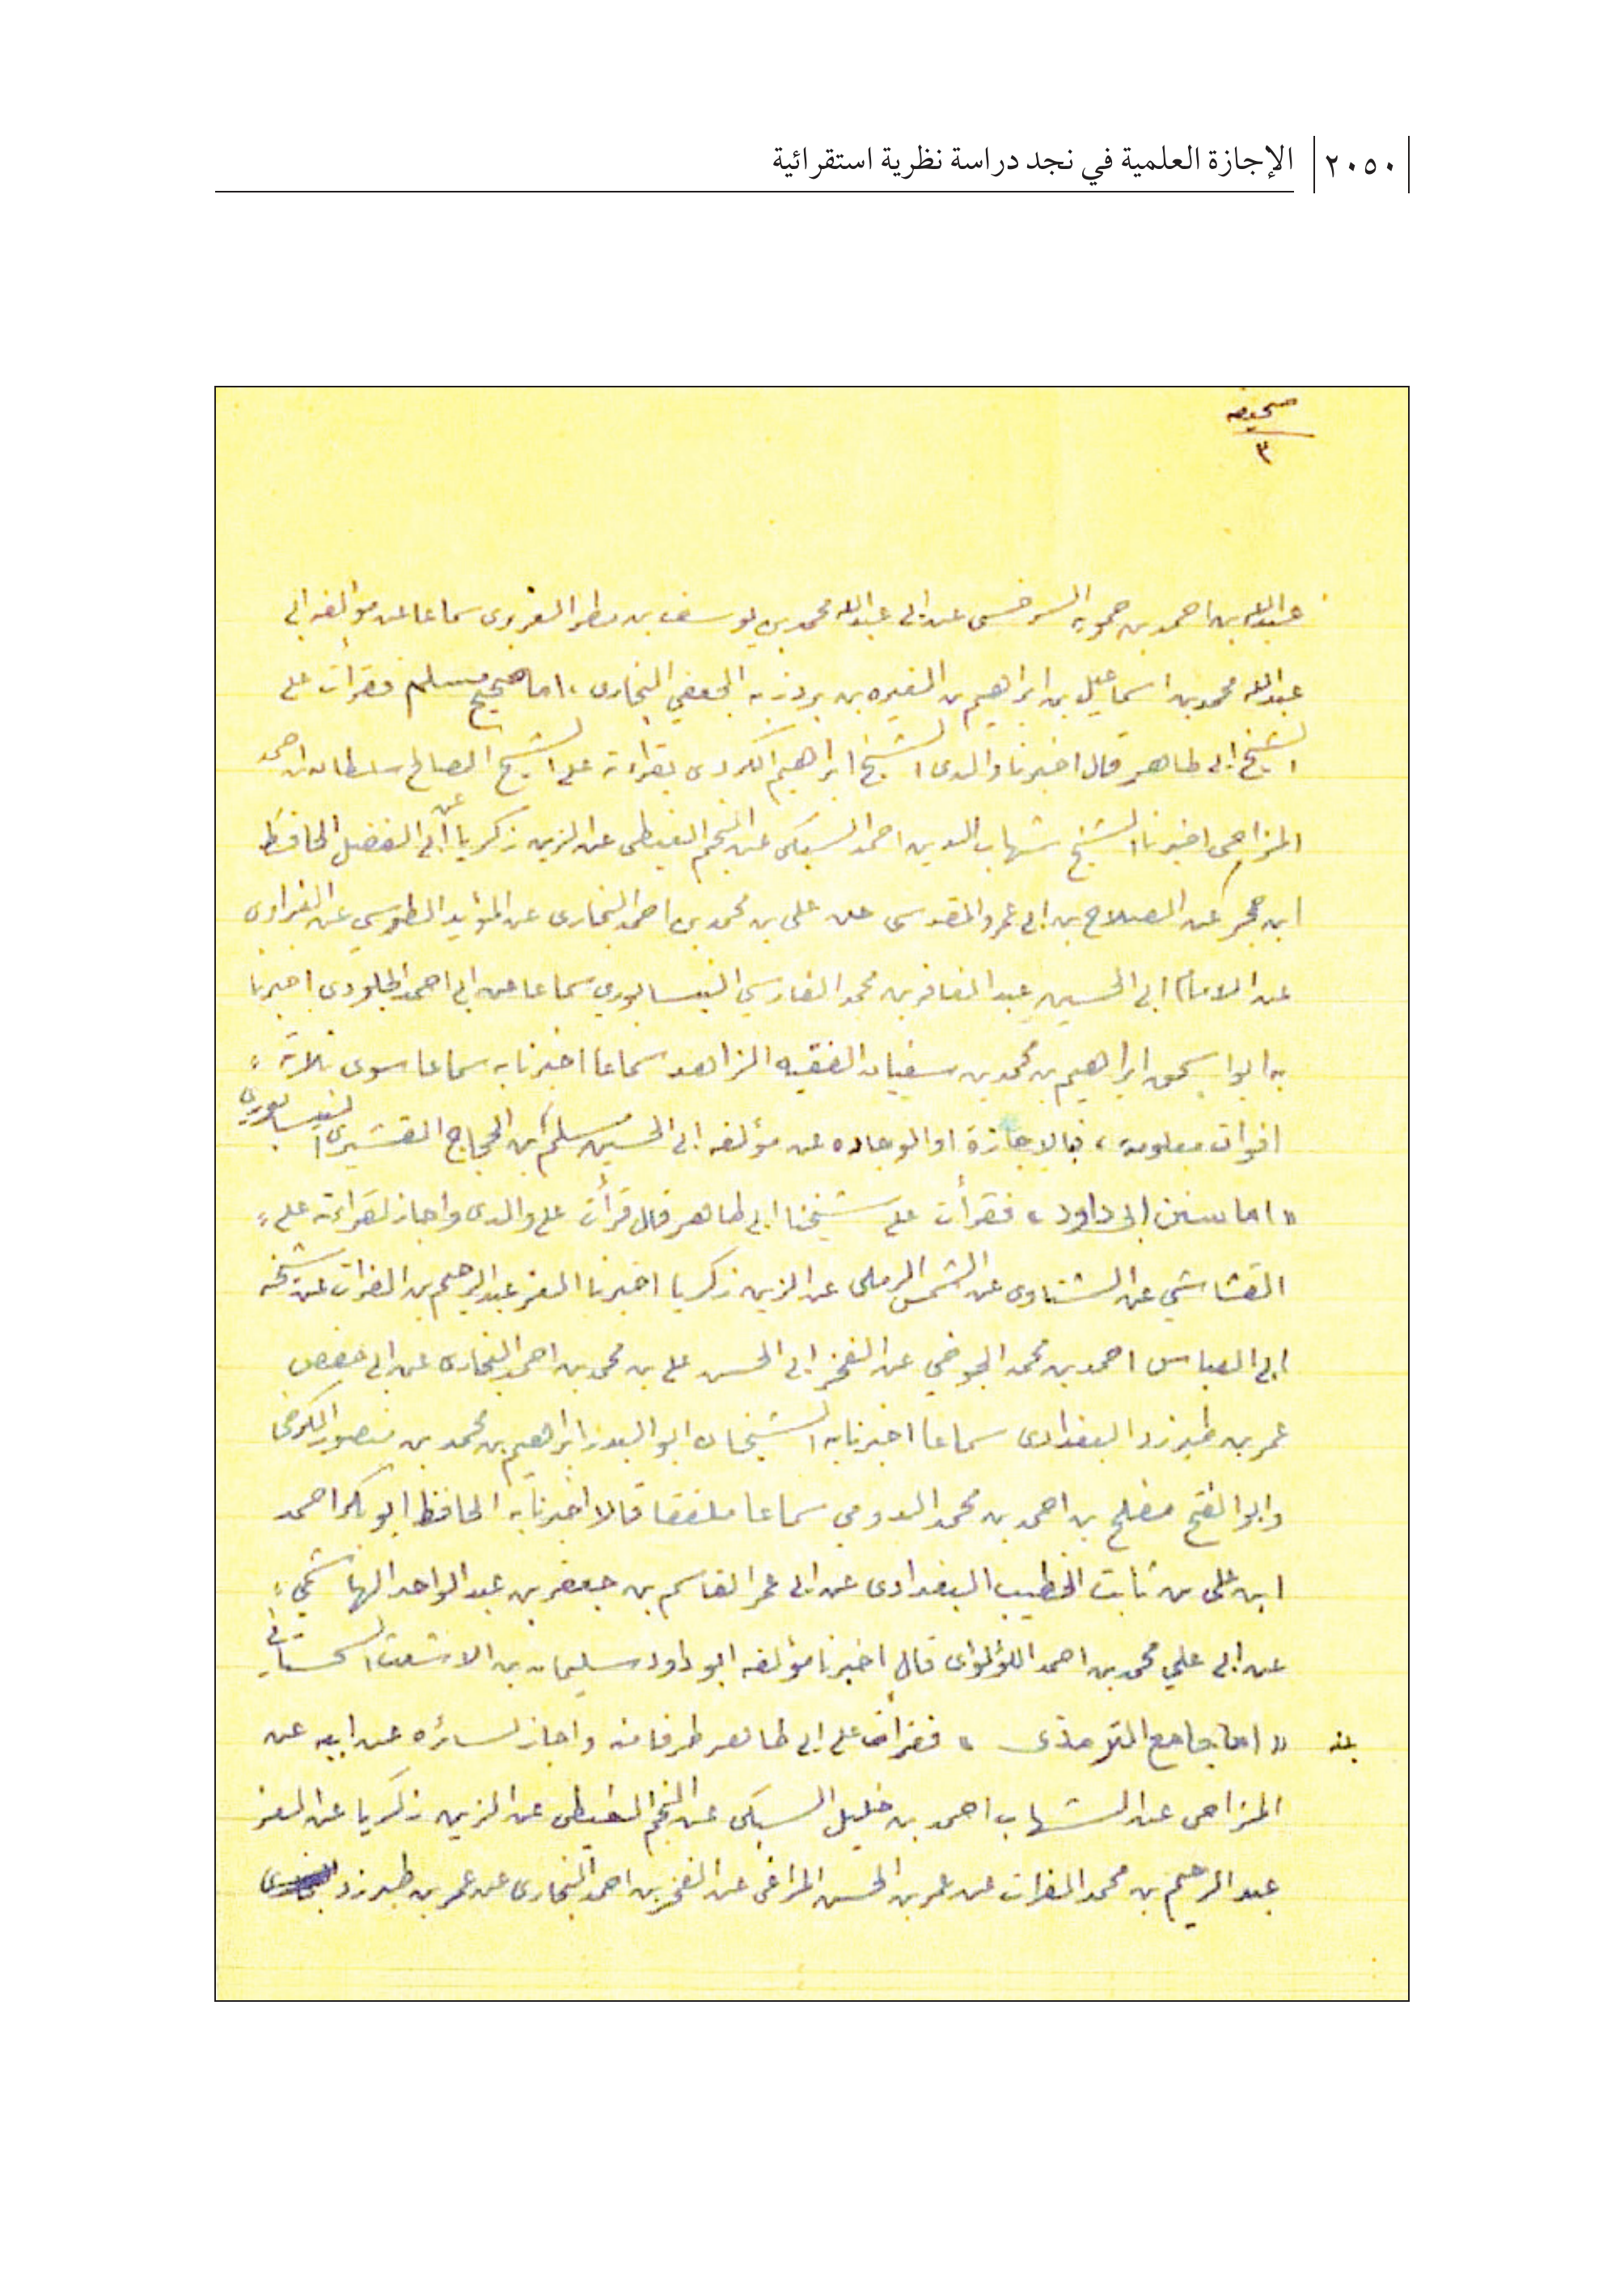 ٢٠٥٠ الإجازة العلمية في نجد دراسة نظرية استقرائية
صحيفه
٣
عبدالله بن احمد بن حمويه السرخسى عن ابى عبدالله محمد بن يوسف بن مطر الفربرى سماعا عن مؤلفه ابى
عبدالله محمد بن اسماعيل بن ابراهيم بن المغيره بن بردزبه الجعفي البخارى ، اما صحيح مسلم فقرأت على
الشيخ ابى طاهر قال اخبرنا والدى الشيخ ابراهيم الكردى بقراءته على الشيخ الصالح سلطان بن احمد
المزاحى اخبرنا الشيخ شهاب الدين احمد السبكى عن النجم الغيطى عن الزين زكريا عن أبي الفضل الحافظ
ابن حجر عن الصلاح بن ابى عمر والمقدسى عن على بن محمد بن احمد البخارى عن المؤيد الطوسي عن الفراوى
عن الامام ابى الحسين عبد الغافر بن محمد الفارسي النيسابوري سماعا عن ابى احمد الجلودى اخبرنا
به ابو اسحق ابراهيم بن محمد بن سفيان الفقيه الزاهد سماعا اخبرنا به سماعا سوى ثلاثة
افوات معلومة ، فبالاجازة او الوجاده عن مؤلفه ابى الحسين مسلم ابن الحجاج القشيرى النيسابورى
« اما سنن ابى داود » فقرأت على شيخنا ابى طاهر قال قرأت على والدى واجاز لقراءته على
القشاشي عن الشناوى عن الشمس الرملى عن الزين زكريا اخبرنا العز عبد الرحيم بن الفرات عن شيخه
ابى العباس احمد بن محمد الجوخي عن الفخر ابى الحسن على بن محمد بن احمد البخارى عن ابى حفص
عمر بن طبرزد البغدادى سماعا اخبرنا به الشيخان ابو البدر ابراهيم بن محمد بن منصور الكرخى
وابو الفتح مفلح بن احمد بن محمد الدومى سماعا ملفقا قالا اخبرنا به الحافظ ابو بكر احمد
ابن على بن ثابت الخطيب البغدادى عن ابى عمر القاسم بن جعفر بن عبد الواحد الهاشمي
عن ابى علي محمد بن احمد اللؤلؤى قال اخبرنا مؤلفه ابو داود سليمان بن الاشعث السجستانى
« اما جامع الترمذى » فقرأت على ابى طاهر طرفا منه واجاز لسائره عن ابيه عن
المزاحى عن الشهاب احمد بن خليل السبكى عن النجم الغيطى عن الزين زكريا عن العز
عبد الرحيم بن محمد الفرات عن عمر بن الحسن المراغى عن الفخر بن احمد البخارى عن عمر بن طبرزد